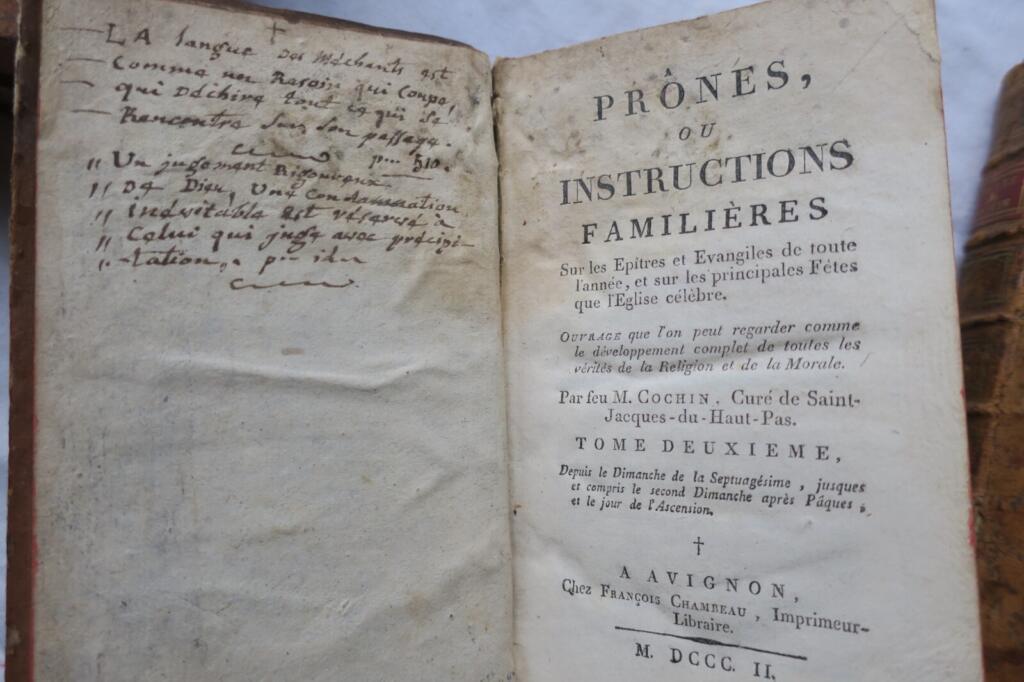 †
— LA langue des méchants est
— Comme un Rasoir qui Coupe,
— qui Déchire tout ce qui se
— Rencontre sur son passage.
p— 510.
" Un jugement Rigoureux
" De Dieu, Une Condamnation
" inévitable est réservé à
" Celui qui juge avec précipi-
" -tation,. p— idem
PRÔNES,
OU
INSTRUCTIONS
FAMILIÈRES
Sur les Epîtres et Evangiles de toute
l'année, et sur les principales Fêtes
que l'Eglise célèbre.
OUVRAGE que l'on peut regarder comme
le développement complet de toutes les
vérités de la Religion et de la Morale.
Par feu M. COCHIN, Curé de Saint-
Jacques-du-Haut-Pas.
TOME DEUXIEME,
Depuis le Dimanche de la Septuagésime, jusques
et compris le second Dimanche après Pâques,
et le jour de l'Ascension.
†
A AVIGNON,
Chez FRANÇOIS CHAMBEAU, Imprimeur-
Libraire.
M. DCCC. II.